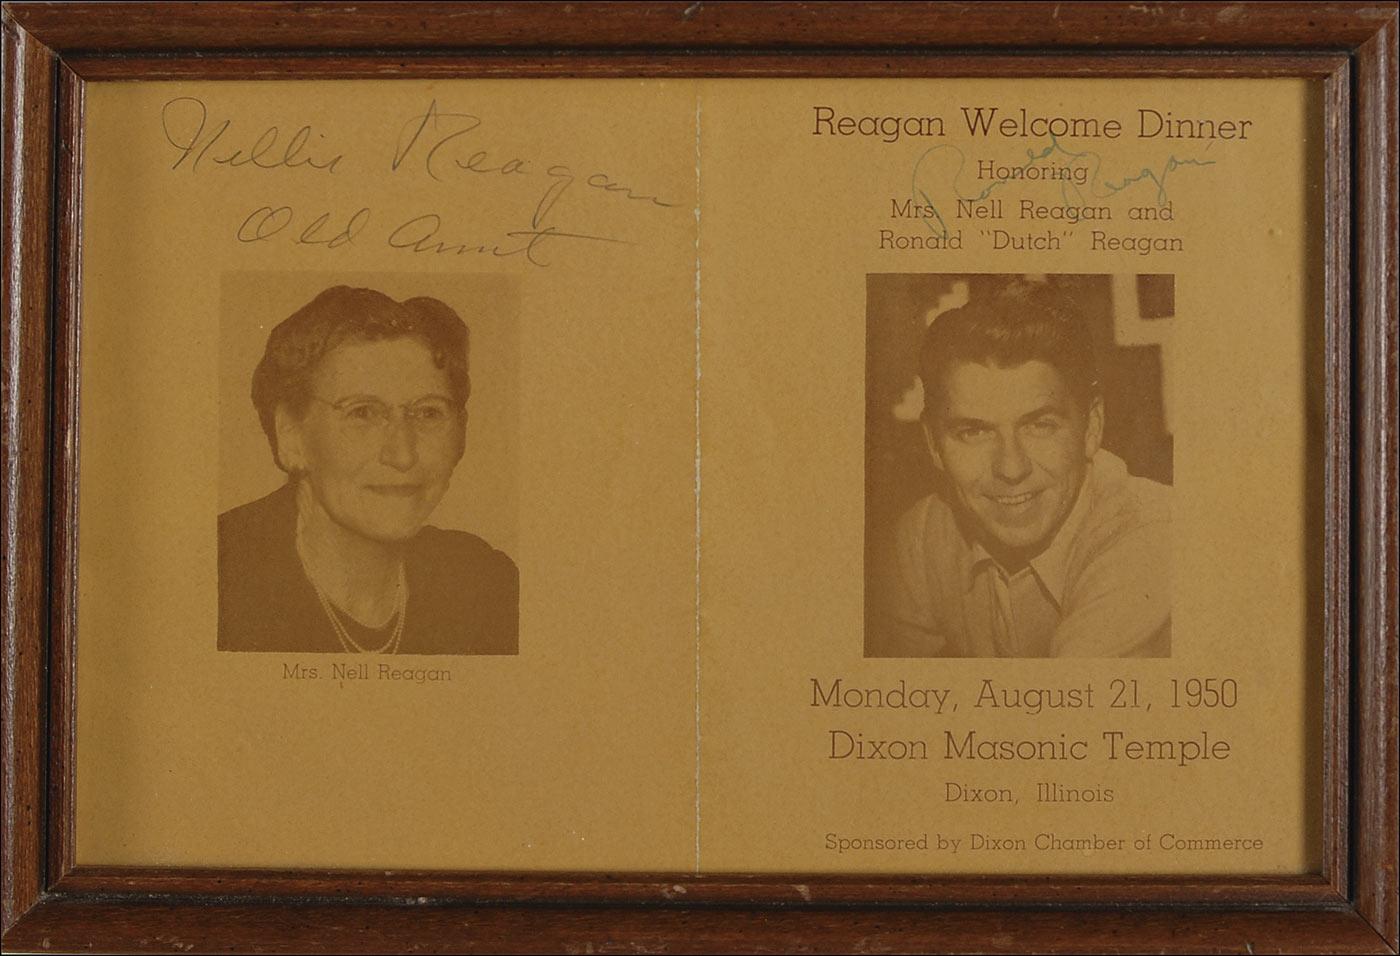 Nellie Reagan
Old Aunt
Mrs. Nell Reagan
Reagan Welcome Dinner
Ronald Reagan
Honoring
Mrs. Nell Reagan and
Ronald "Dutch" Reagan
Monday, August 21, 1950
Dixon Masonic Temple
Dixon, Illinois
Sponsored by Dixon Chamber of Commerce